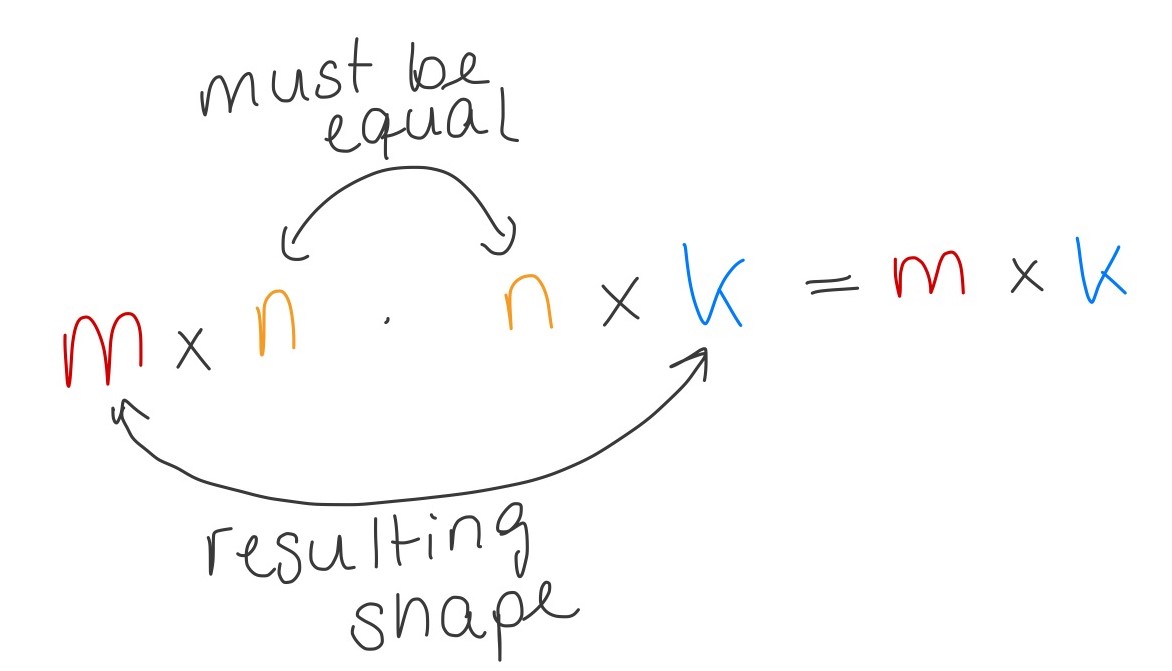 must be
equal
m × n · n × k = m × k
resulting
shape